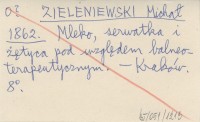 ZIELENIEWSKI Michał
1862. Mleko, serwatka i
żętyca pod względem balneo-
terapeutycznym. – Kraków.
8°.